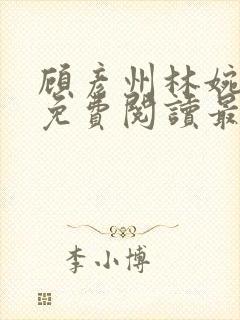 顾彦州林婉
免費閱讀最
李小博